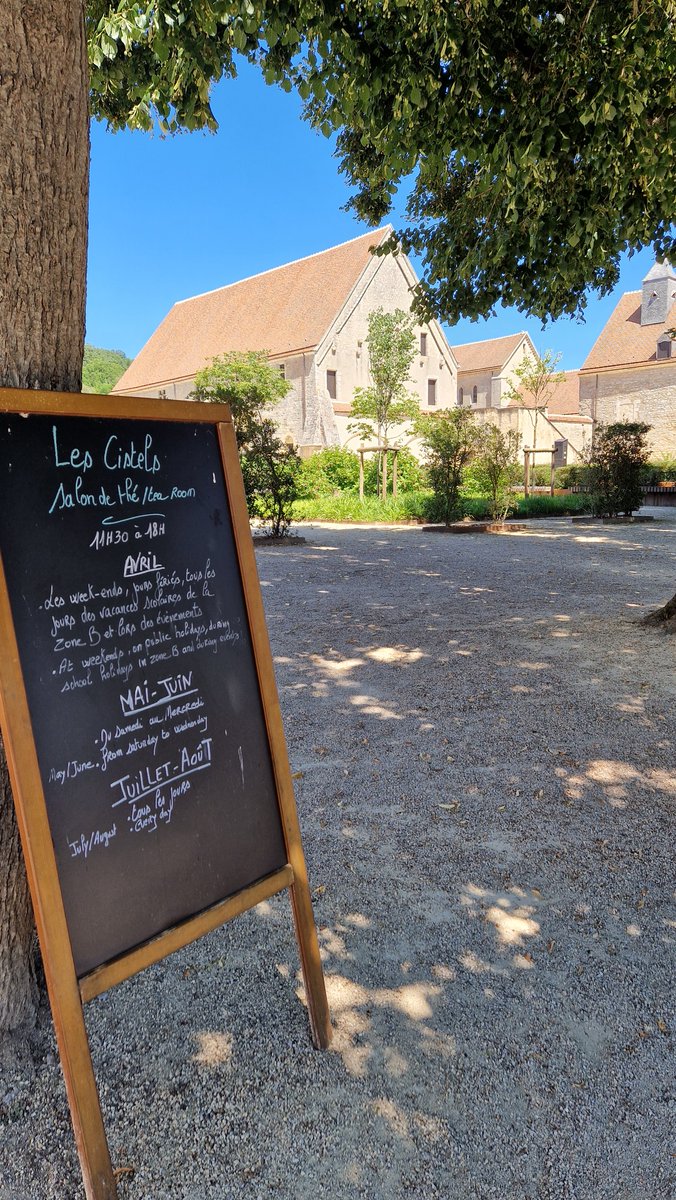 Les Cistels
salon de thé / tea room
11H30 à 18H
AVRIL
. Les week-ends, jours fériés, tous les
jours des vacances scolaires de la
zone B et lors des évènements
. At weekends, on public holidays, during
school holidays in zone B and during events
MAI-JUIN
. Du samedi au Mercredi
May/June . From saturday to wednesday
JUILLET-AOÛT
. tous les jours
July/August . Every day